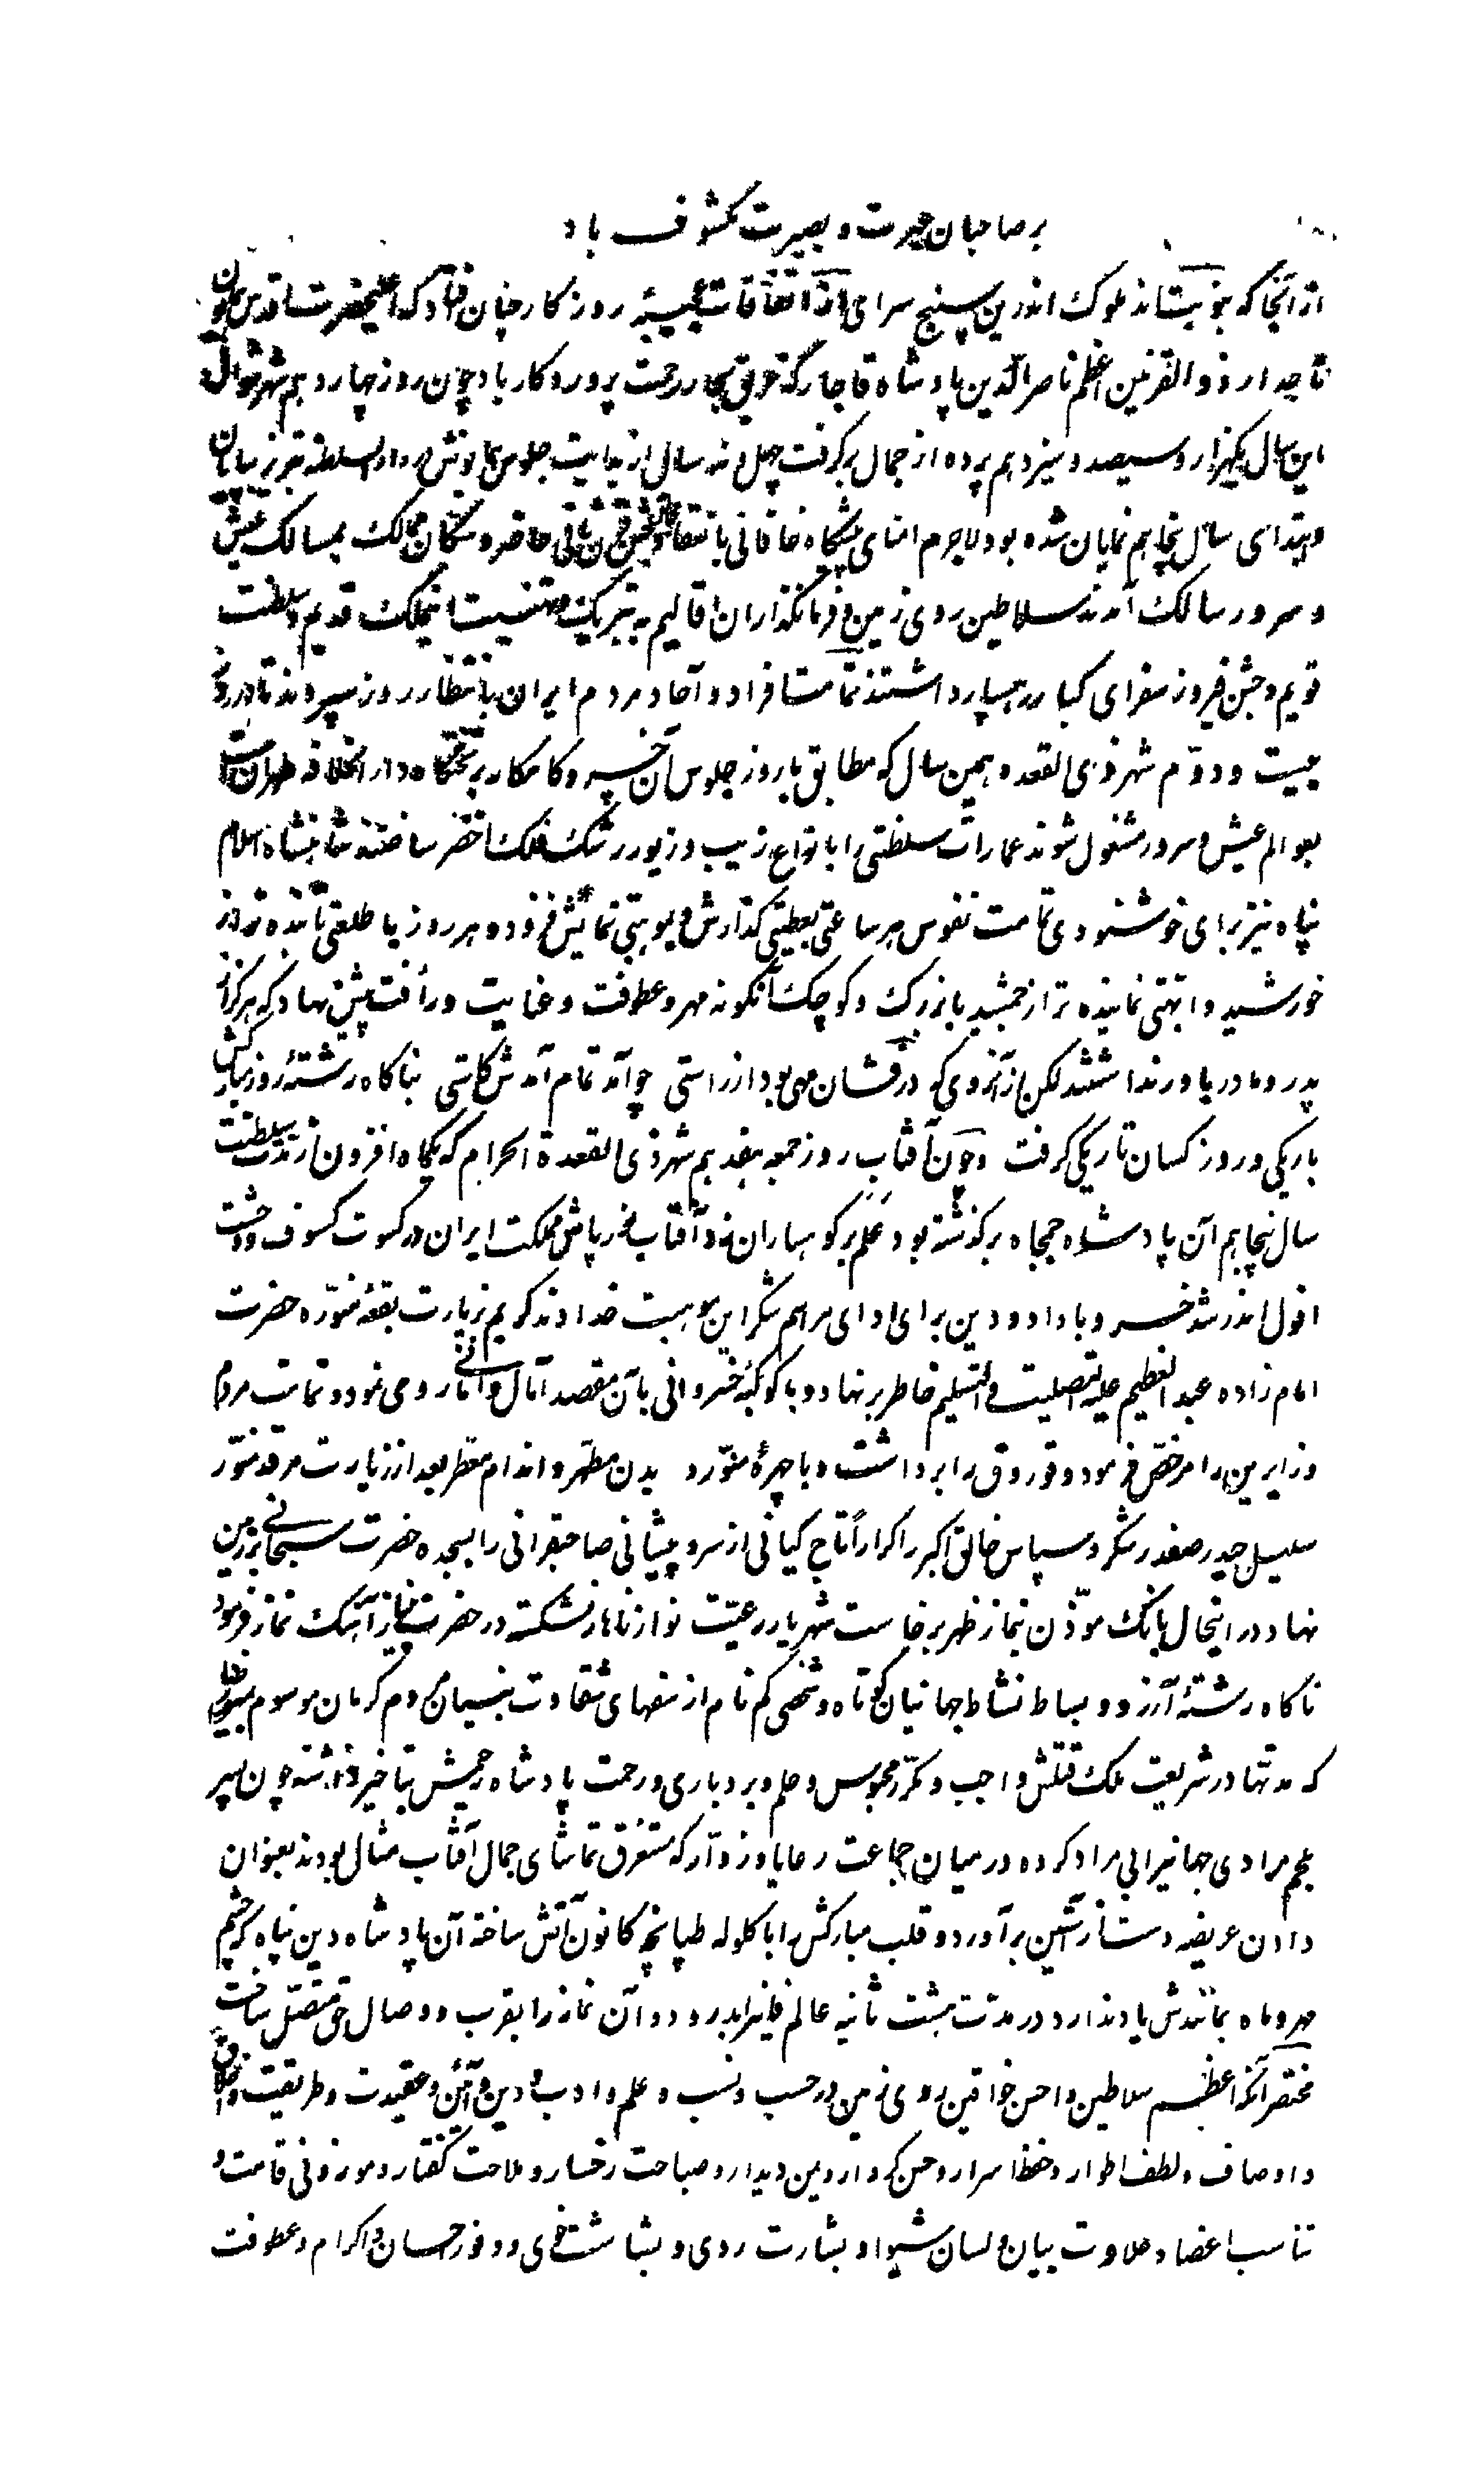 بر صاحبان عبرت و بصیرت مکشوف باد
از آنجا که بنوبتند ملوک اندرین سپنج سرای از اتفاقات عجیبه روزکار چنان فتاد که اعلیحضرت اقدس همایون
تاجدار ذوالقرنین اعظم ناصرالدین پادشاه قاجار که غریق بحار رحمت پروردکار باد چون روز چهاردهم شهر شوال
این سال یکهزار و سیصد و سیزدهم پرده از جمال برکرفت چهل و نه سال از بدایت جلوس همایونش در دار السلطنه تبریز بپایان
و ابتدای سال پنجاهم نمایان شده بود لاجرم امنای پیشکاه خاقانی بانعقاد جشن قرن ثانی حاضر و سکان ممالک بمسالک عیش
و سرور سالک آمدند سلاطین روی زمین و فرمانکذاران اقالیم به تبریک و تهنیت اینملک قدیم و سلطنت
قویم و جشن فیروز سفرای کبار رهسپار داشتند تمامت افراد و آحاد مردم ایران بانتظار روز سپردند تا در روز
بیست و دوّم شهر ذی القعده همین سال که مطابق با روز جلوس آن خسرو کامکار بر تختکاه دار الخلافه طهران است
بعوالم عیش و سرور مشغول شوند عمارات سلطنتی را بانواع زیب و زیور رشک فلک اخضر ساختند شاهنشاه اسلام
پناه نیز برای خوشنودی تمامت نفوس هر ساعتی بعطیتی کذارش و بموهبتی نمایش فزوده هر روز با طلعتی تابنده تر از
خورشید و ابهتی نماینده تر از جمشید با بزرک و کوچک آنکونه مهر و عطوفت و عنایت و رأفت پیش نهاد که هرکز از
پدر و مادر یاور نداشتند لکن از آنروی که درفشان می بود از راستی چو آمد تمام آمدش کاستی بناکاه رشته روز مبارکش
باریکی و روز کسان تاریکی کرفت و چون آفتاب روز جمعه هفدهم شهر ذی القعدة الحرام که یکماه افزون از مدت سلطنت
سال پنجاهم آن پادشاه جمجاه برکذشته بود عَلَم بر کوهساران زد آفتاب فخر پاش مملکت ایران در کسوت کسوف و وحشت
افول اندر شد خسرو با داد و دین برای ادای مراسم شکر این موهبت خداوند کریم بزیارت بقعه منوّره حضرت
امام زاده عبد العظیم علیه التصلیت و التسلیم خاطر برنهاد و با کوکبهٔ خسروانی بآن مقصد آمال و امانی روی نمود و تمامت مردم
و زایرین را مرخص فرمود و قوروق را برداشت و با چهرهٔ منوّر و بدن مطهر و اندام معطر بعد از زیارت مرقد منوّر
سلیل حیدر صفدر شکر و سپاس خالق اکبر را کراراً تاج کیانی از سر و پیشانی صاحبقرانی را بسجده حضرت سبحانی بر زمین
نهاد در اینحال بانک مؤذن بنماز ظهر برخاست شهریار رعیت نواز ناهار نشکسته در حضرت بی نیاز آهنک نماز فرمود
ناکاه رشتهٔ آرزو و بساط نشاط جهانیان کوتاه و شخصی کم نام از سفهای شقاوت بنیان مردم کرمان موسوم بمیرزا رضا
که مدتها در شریعت ملک قتلش واجب و مکرّر محبوس و حلم و بردباری و رحمت پادشاه رحیمش بتاخیر انداخته چون پسر
ملجم مرادی جهانیرا بی مراد کرده در میان جماعت رعایا و زوّار که مستغرق تماشای جمال آفتاب مثال بودند بعنوان
دادن عریضه دست از آستین برآورد و قلب مبارکش را با کلوله طپانچه کانون آتش ساخته آن پادشاه دین پناه که چشم
مهر و ماه بمانندش یاد ندارد در مدّت هشت ثانیه عالم فانیرا بدرود و آن نماز را بقرب و وصال حق متصّل ساخت
مختصر آنکه اعظم سلاطین و احسن خواقین روی زمین در حسب و نسب و علم و ادب و دین و آئین و عقیدت و طریقت و اخلاق
و اوصاف و لطف اطوار و حفظ اسرار و حسن کردار و یمن دیدار و صباحت رخسار و ملاحت کفتار و موزونی قامت و
تناسب اعضا و حلاوت بیان و لسان شیوا و بشارت روی و بشاشت خوی و وفور احسان و اکرام و عطوفت